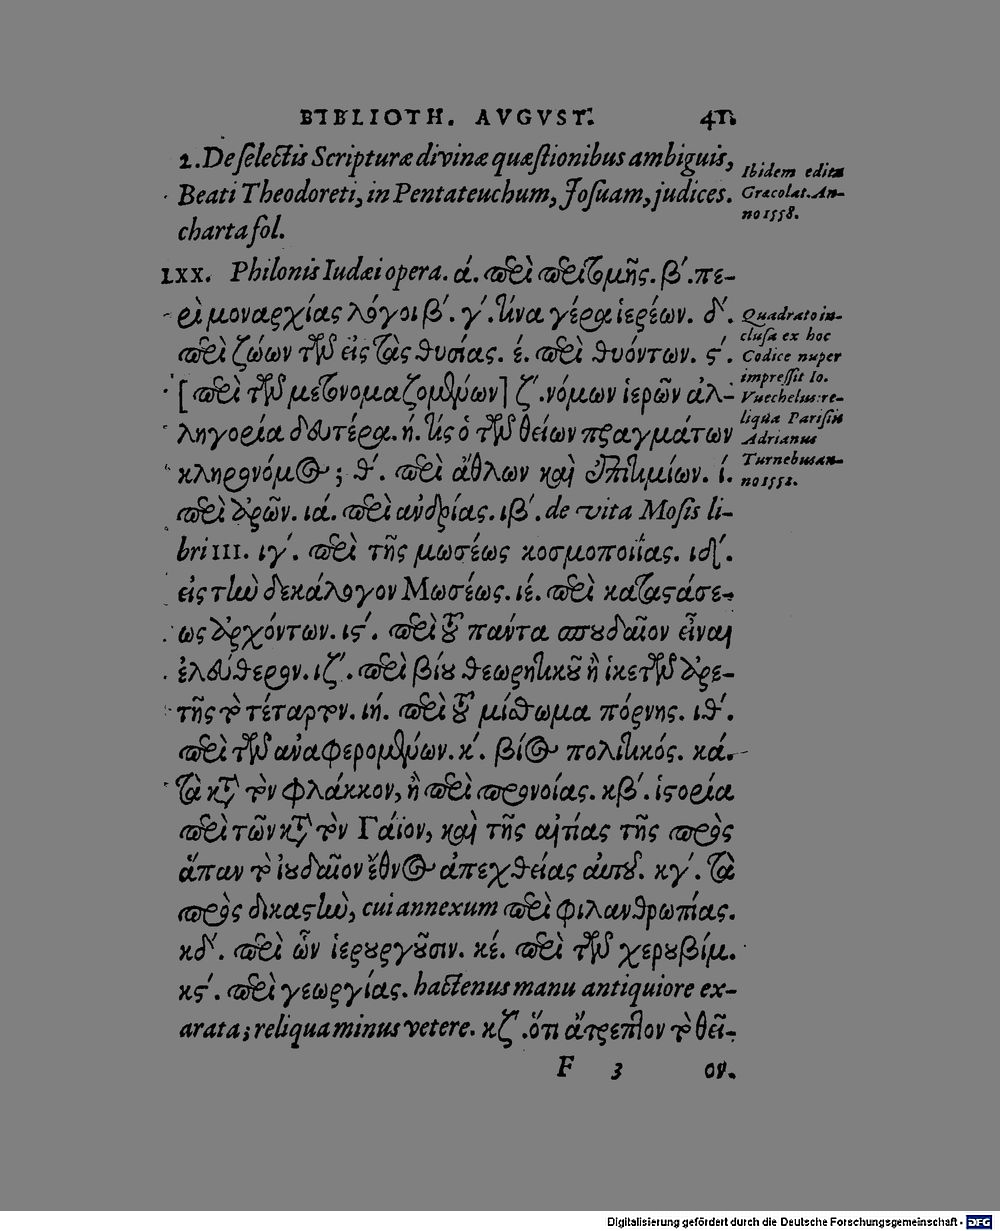 BIBLIOTH. AVGVST. 41.
2. De selectis Scripturæ divinæ quæstionibus ambiguis,
Beati Theodoreti, in Pentateuchum, Josuam, judices.
charta fol.
Ibidem edita
Græcolat. An-
no 1558.
LXX. Philonis Iudæi opera. ά. περὶ περιτομῆς. β΄. πε-
ρὶ μοναρχίας λόγοι β΄. γ΄. τίνα γέρα ἱερέων. δ΄.
περὶ ζώων τῶν εἰς τὰς θυσίας. έ. περὶ θυόντων. ς΄.
[περὶ τῶν μετονομαζομένων] ζ΄. νόμων ἱερῶν ἀλ-
ληγορία δευτέρα. ή. τίς ὁ τῶν θείων πραγμάτων
κληρονόμος; θ΄. περὶ ἄθλων καὶ ἐπιτιμίων. ί.
περὶ ἀρῶν. ιά. περὶ ἀνδρίας. ιβ΄. de vita Mosis li-
bri III. ιγ΄. περὶ τῆς μωσέως κοσμοποιίας. ιδ΄.
εἰς τὴν δεκάλογον Μωσέως. ιέ. περὶ καταστάσε-
ως ἀρχόντων. ις΄. περὶ τοῦ πάντα σπουδαῖον εἶναι
ἐλεύθερον. ιζ΄. περὶ βίου θεωρητικοῦ ἢ ἱκετῶν ἀρε-
τῆς τὸ τέταρτον. ιή. περὶ τοῦ μίσθωμα πόρνης. ιθ΄.
περὶ τῶν ἀναφερομένων. κ΄. βίος πολιτικός. κά.
τὰ κατὰ τὸν φλάκκον, ἢ περὶ προνοίας. κβ΄. ἱστορία
περὶ τῶν κατὰ τὸν Γάϊον, καὶ τῆς αἰτίας τῆς πρὸς
ἅπαν τὸ ἰουδαῖον ἔθνος ἀπεχθείας αὐτοῦ. κγ΄. τὰ
πρὸς δικαστὴν, cui annexum περὶ φιλανθρωπίας.
κδ΄. περὶ ὧν ἱερουργοῦσιν. κέ. περὶ τῶν χερουβίμ.
κς΄. περὶ γεωργίας. hactenus manu antiquiore ex-
arata; reliqua minus vetere. κζ΄. ὅτι ἄτρεπτον τὸ θεῖ-
Quadrato in-
clusa ex hoc
Codice nuper
impressit Io.
Vuechelus: re-
liqua Parisiis
Adrianus
Turnebus an-
no 1552.
F 3 ον.
Digitalisierung gefördert durch die Deutsche Forschungsgemeinschaft - DFG